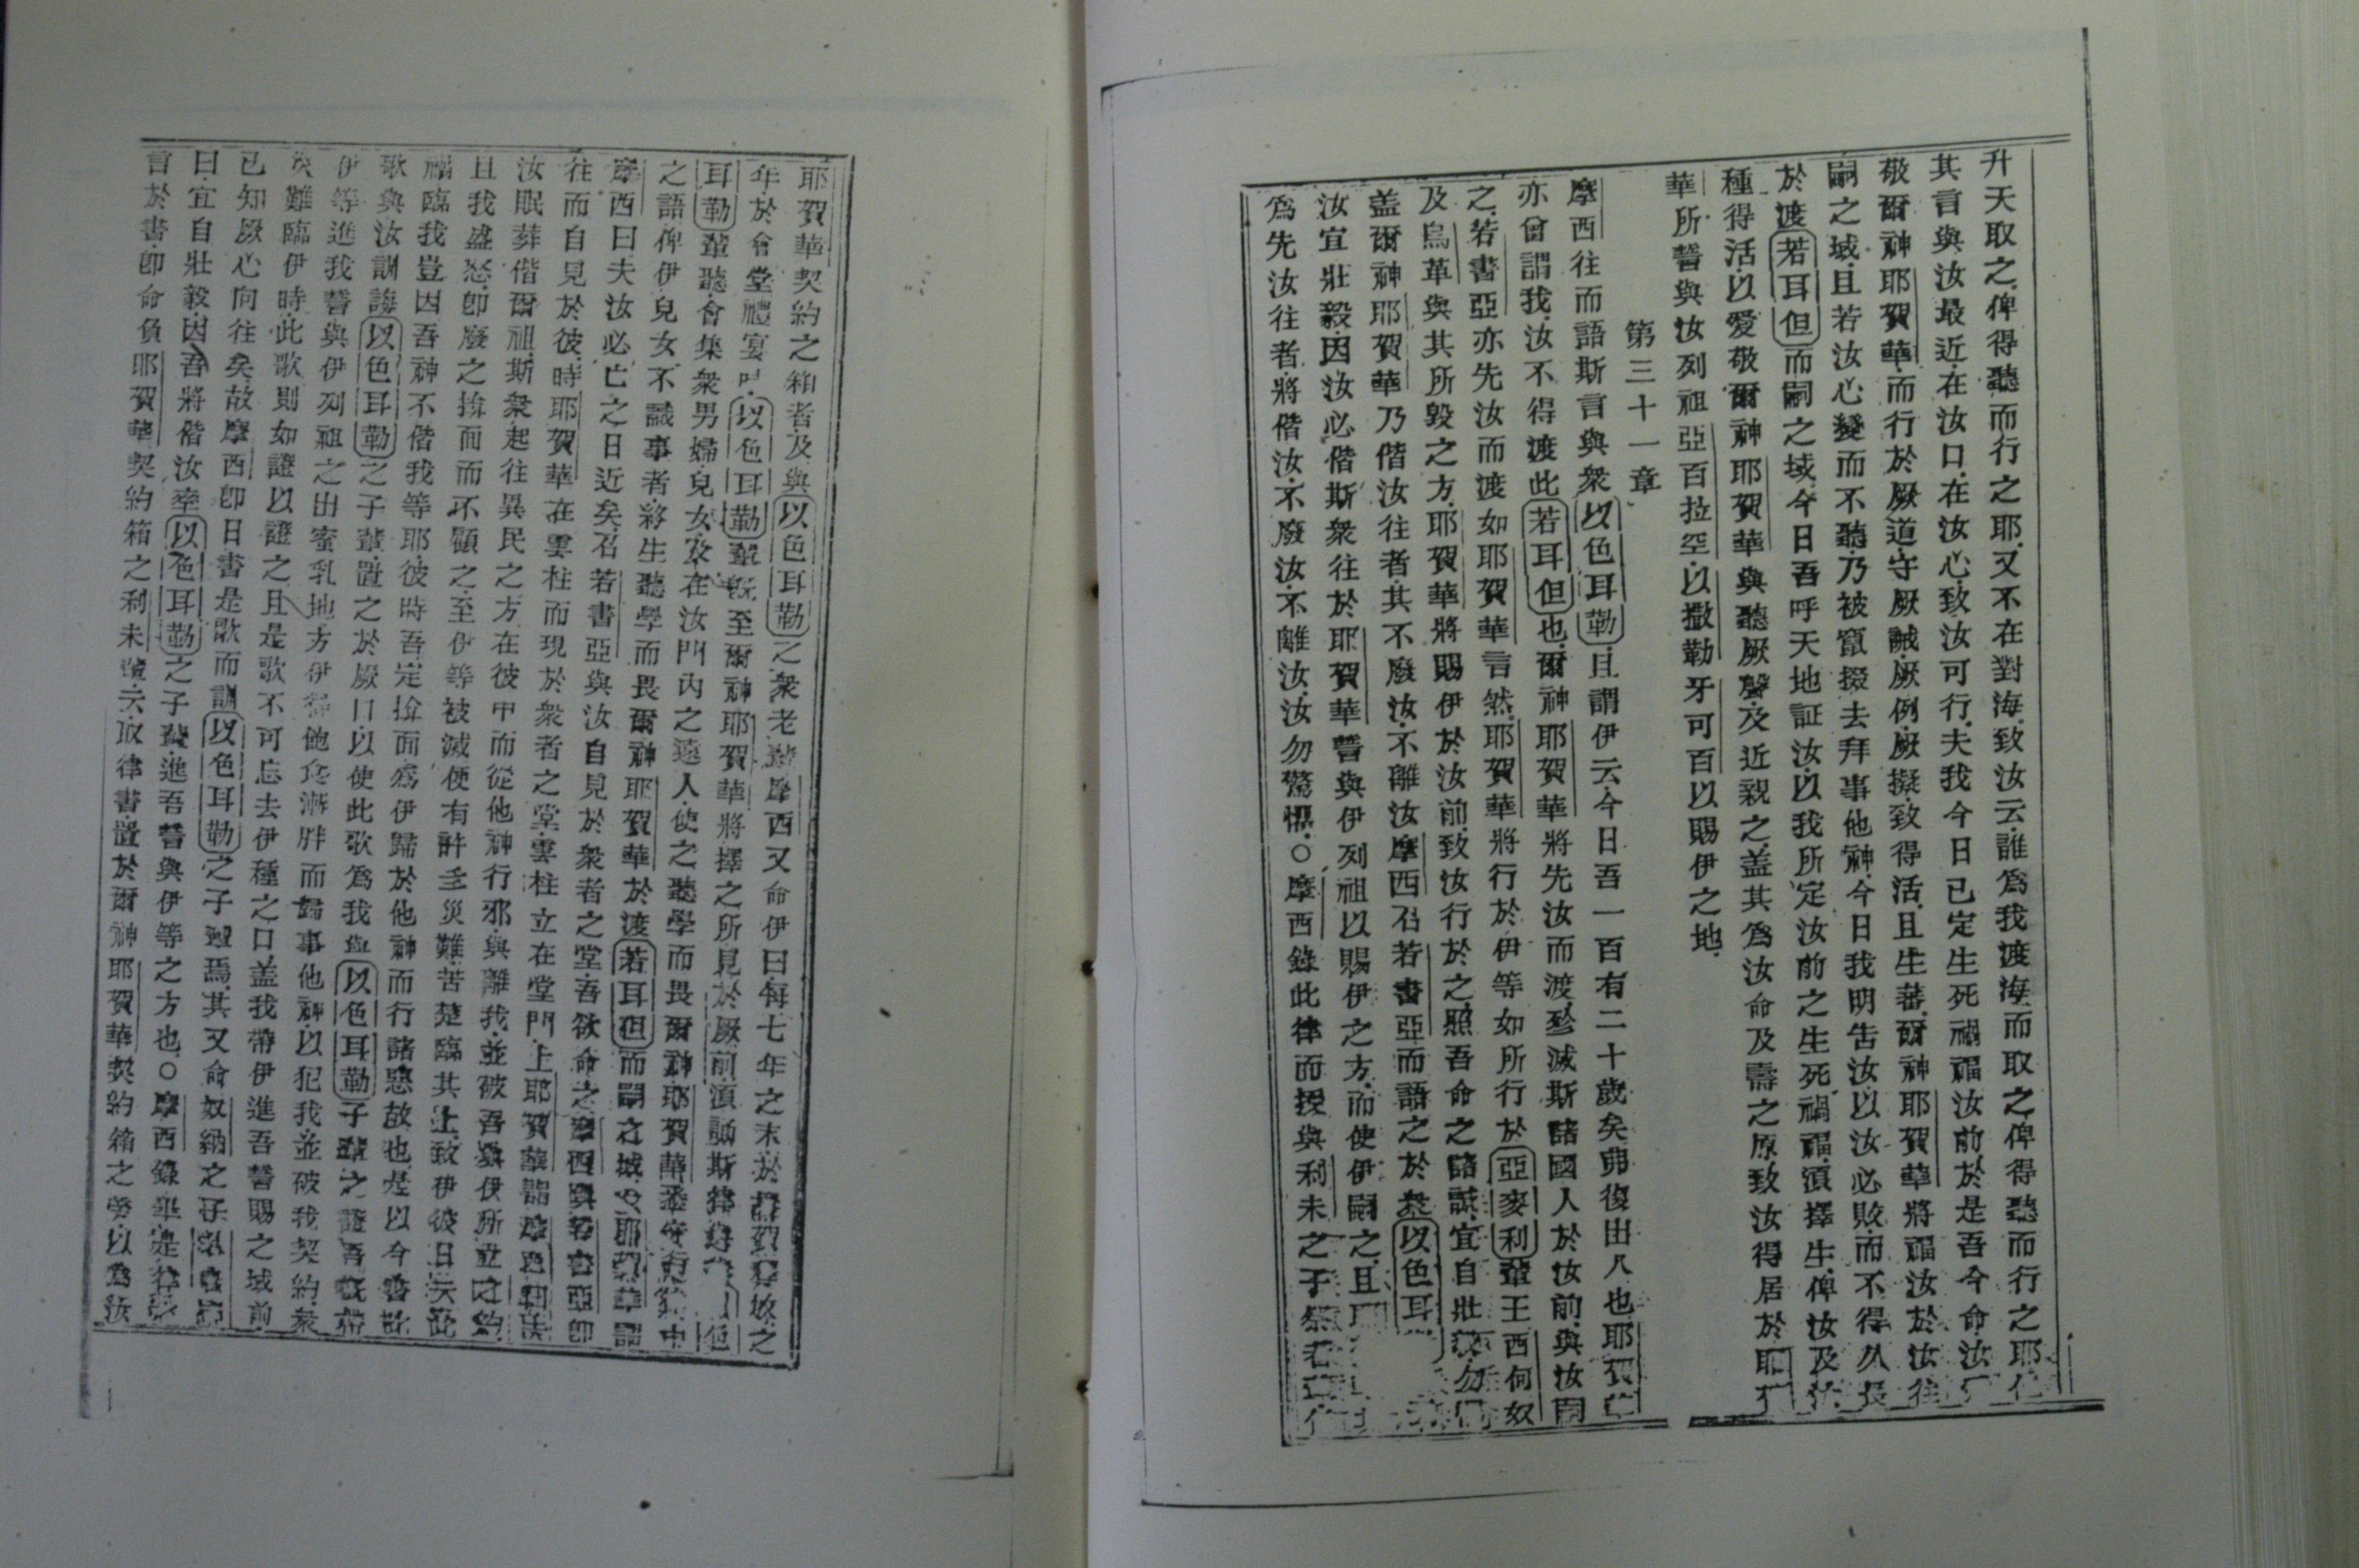 升天取之俾得聽而行之耶又不在對海致汝云誰為我渡海而取之俾得聽而行之耶
其言與汝最近在汝口在汝心致汝可行夫我今日已定生死禍福汝前於是吾今命汝
敬爾神耶賀華而行於厥道守厥誡厥例厥擬致得活且生蕃爾神耶賀華將福汝於汝往
嗣之域且若汝心變而不聽乃被竄掇去拜事他神今日我明告汝以汝必敗而不得久長
於渡若耳但而嗣之域今日吾呼天地証汝以我所定汝前之生死禍福須擇生俾汝及
種得活以愛敬爾神耶賀華與聽厥聲及近親之盖其為汝命及壽之原致汝得居於耶
華所誓與汝列祖亞百拉空以撒勒牙可百以賜伊之地
第三十一章
摩西往而語斯言與衆以色耳勒且謂伊云今日吾一百有二十歲矣弗復出入也耶賀華
亦曾謂我汝不得渡此若耳但也爾神耶賀華將先汝而渡殄滅斯諸國人於汝前與汝嗣
之若書亞亦先汝而渡如耶賀華言然耶賀華將行於伊等如所行於亞麥利輩王西何奴
及烏革與其所毀之方耶賀華將賜伊於汝前致汝行於之照吾命之諸誡宜自壯勿
盖爾神耶賀華乃偕汝往者其不廢汝不離汝摩西召若書亞而語之於衆以色耳
汝宜壯毅因汝必偕斯衆往於耶賀華誓與伊列祖以賜伊之方而使伊嗣之且
為先汝往者將偕汝不廢汝不離汝汝勿驚懼○摩西錄此律而授與利未之子
耶賀華契約之箱者及與以色耳勒之衆老輩摩西又命伊曰每七年之末於
年於會堂禮宴時以色耳勒輩既至爾神耶賀華將擇之所見於厥前須誦斯律
耳勒輩聽會集衆男婦兒女及在汝門內之遠人使之聽學而畏爾神耶賀華
之語俾伊兒女不識事者將生聽學而畏爾神耶賀華於渡若耳但而嗣之域
摩西曰夫汝必亡之日近矣召若書亞與汝自見於衆者之堂吾欲命之摩西與若書亞卽
往而自見於彼時耶賀華在雲柱而現於衆者之堂雲柱立在堂門上耶賀華謂摩西曰
汝眠葬偕爾祖斯衆起往異民之方在彼中而從他神行邪與離我並破吾與伊所立之約
且我盛怒卽廢之掩面而不顧之至伊等被滅便有許多災難苦楚臨其上致伊彼日云
禍臨我豈因吾神不偕我等耶彼時吾定掩面為伊歸於他神而行諸惡故也是以今書此
歌與汝訓誨以色耳勒之子輩置之於厥口以使此歌為我與以色耳勒子輩之證吾既帶
伊等進我誓與伊列祖之出蜜乳地方伊得飽食漸胖而歸事他神以犯我並破我契約衆
災難臨伊時此歌則如證以證之且是歌不可忘去伊種之口盖我帶伊進吾誓賜之域前
已知厥心向往矣故摩西卽日書是歌而訓以色耳勒之子輩焉其又命奴納之子
曰宜自壯毅因吾將偕汝率以色耳勒之子輩進吾誓與伊等之方也○摩西錄畢是律
言於書卽命負耶賀華契約箱之利未輩云取律書置於爾神耶賀華契約箱之旁以為汝